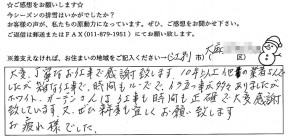 ☆ご感想をお願いします☆
今シーズンの排雪はいかがでしたか？
お客様の声が、私たちの原動力になっています。ぜひ、ご感想をお聞かせ下さい。
ご返信は郵送またはFAX（011-879-1951）にてお願い致します。
※差支えなければ、お住まいの地域をご記入ください→（江別 市）（大麻
大変、丁寧なお仕事で感謝致します。10年以上他の業者さん
でしたが 雑な仕事で、時間もルーズで、
ホワイトガーデンさんは仕事も時間も正確で大変感謝
致しています。又、ぜひ来年も宜しくお願い致します
お疲れ様でした。